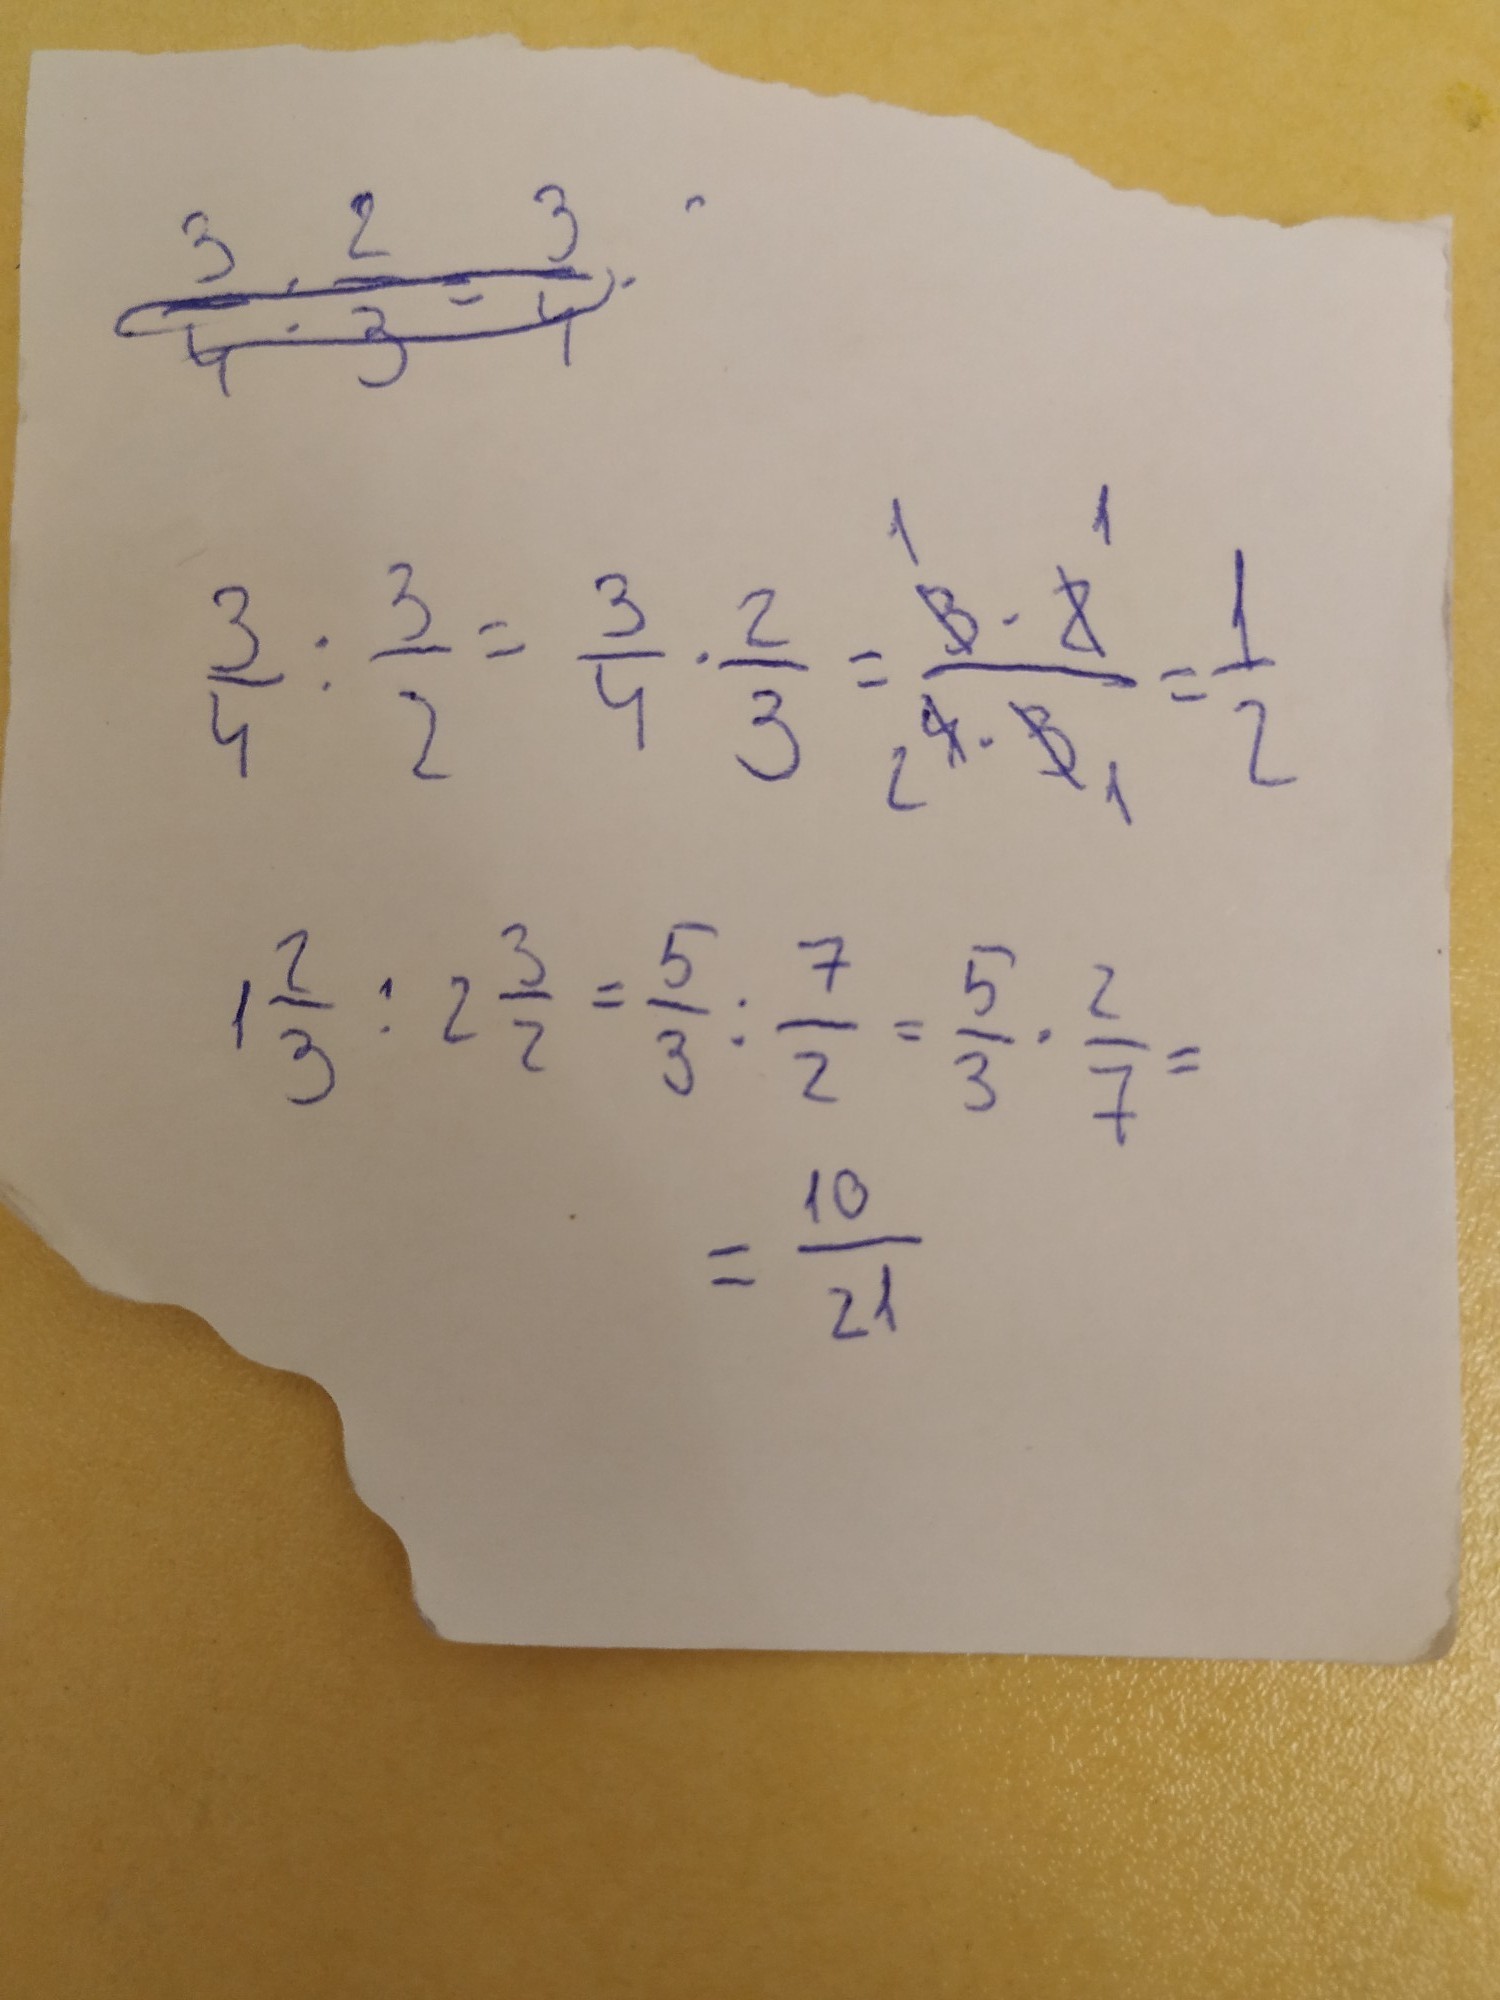 3/4 : 2/3 = 3/4 .
3/4 : 3/2 = 3/4 · 2/3 = 3 · 2 / 4 · 3 = 1/2
1 1
2 1
1 2/3 : 2 3/2 = 5/3 : 7/2 = 5/3 · 2/7 =
= 10/21